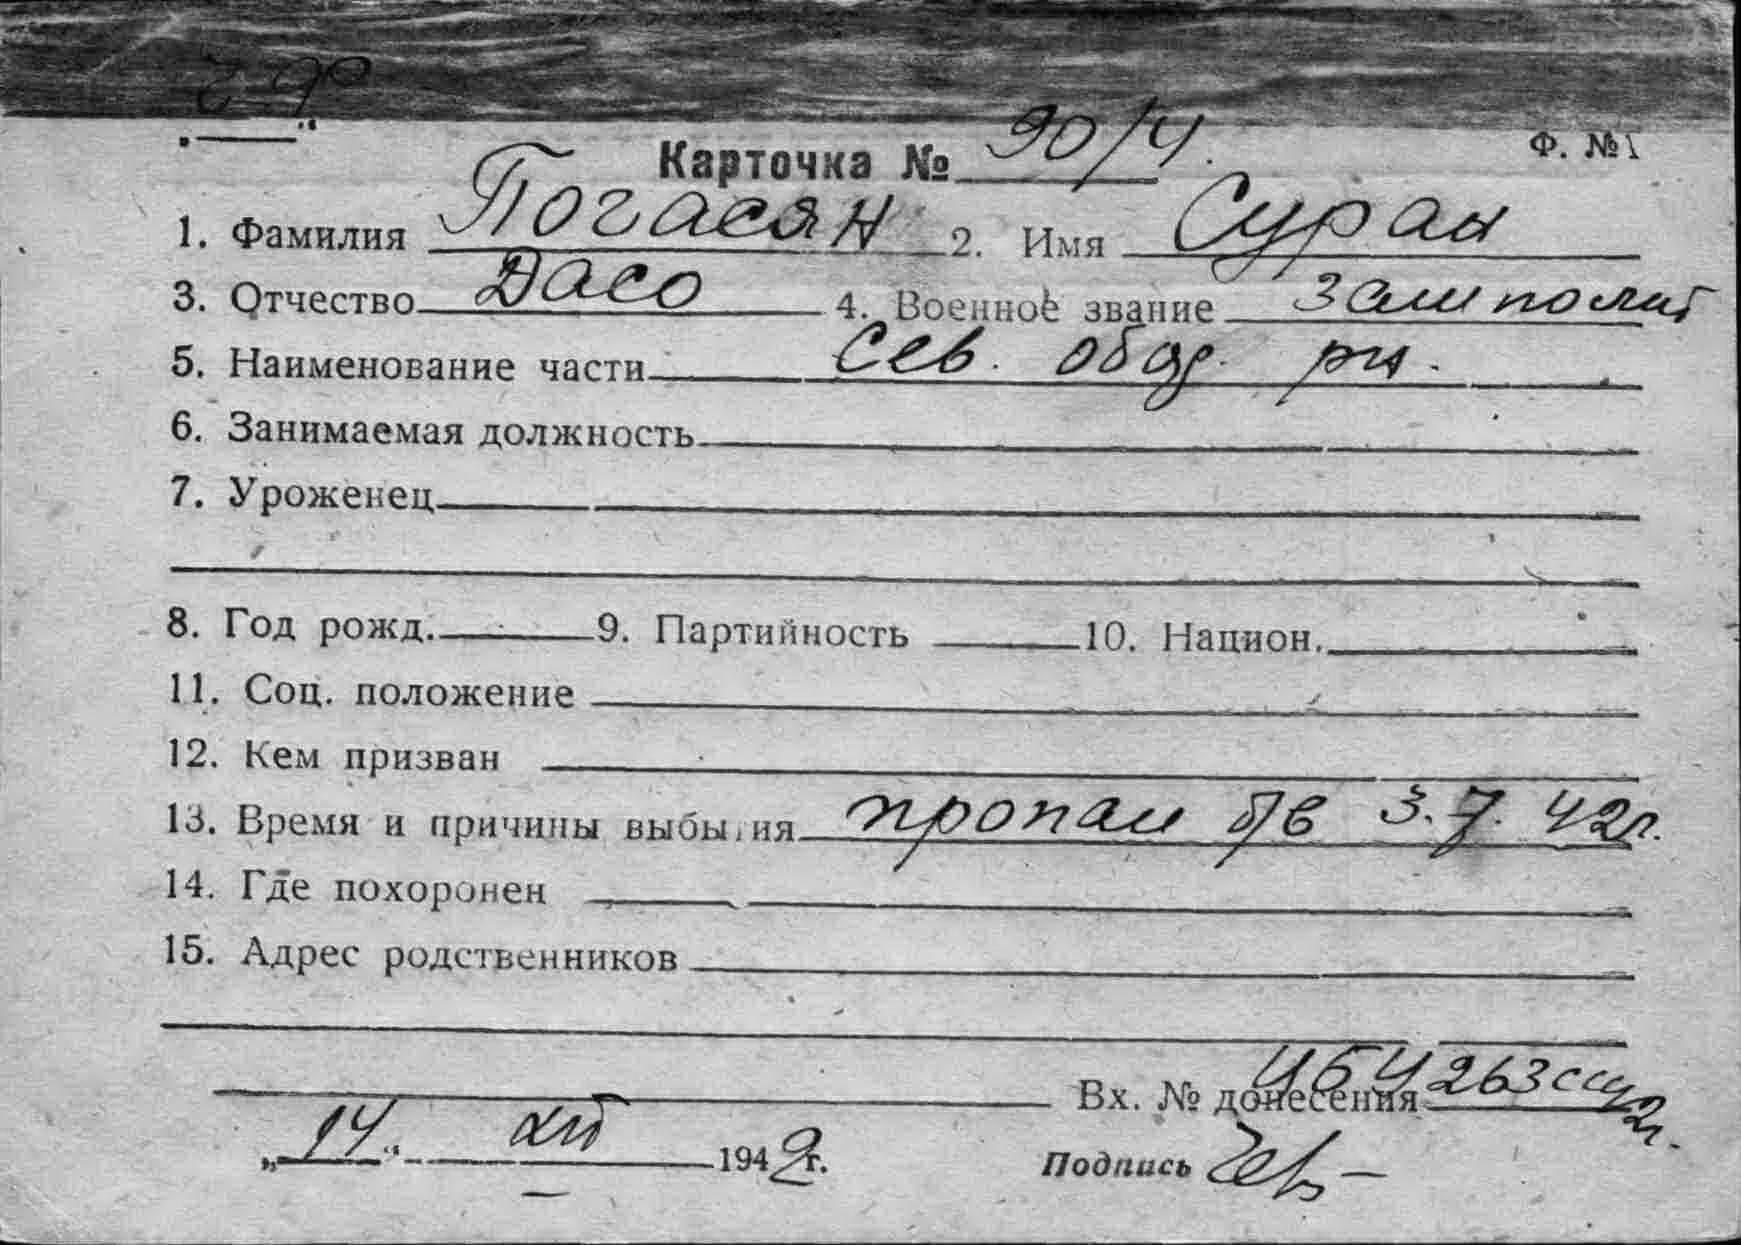 ч ф
„ “
Карточка № 90/4. Ф. №1
1. Фамилия Погасян 2. Имя Суран
3. Отчество Дасо 4. Военное звание Зам полит
5. Наименование части Сев. обор. рн.
6. Занимаемая должность
7. Уроженец
8. Год рожд. 9. Партийность 10. Национ.
11. Соц. положение
12. Кем призван
13. Время и причины выбытия пропал б/в 3.7.42г.
14. Где похоронен
15. Адрес родственников
Вх. № донесения 263
„14“ 1942г. Подпись